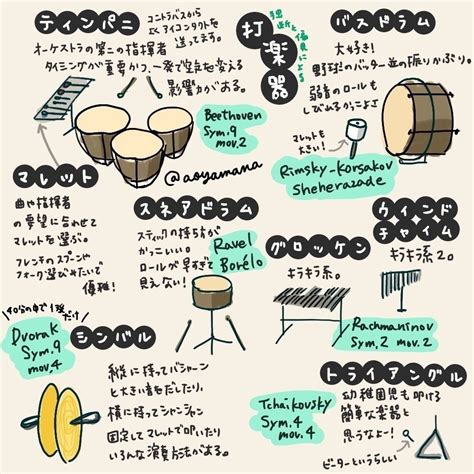 ティンパニ
コントラバスから
よくアイコンタクトを
送ってます。
オーケストラの第二の指揮者
タイミングが重要かつ、一発で空気を変える
影響力がある。
打楽器
独断と
偏見による
バスドラム
大好き!
野球のバッター並の振りかぶり。
弱音のロールも
しびれるかっこよさ
マレットも
大きい!
Rimsky-Korsakov
Sheherazade
Beethoven
Sym.9
mov.2
@aoyamana
マレット
曲や指揮者
の要望に合わせて
マレットを選ぶ。
フレンチのスプーンや
フォーク選びみたいで
優雅!
スネアドラム
スティックの持ち方が
かっこいい。
ロールが早すぎて
見えない!
Ravel
Borélo
グロッケン
キラキラ系。
ウィンド
チャイム
キラキラ系2。
Rachmaninov
Sym.2 mov.2
40分の中で1発だけ
Dvorak
Sym.9
mov.4
シンバル
縦に持ってバシャーン
と大きい音をだしたり、
横に持ってシャンシャン
固定してマレットで叩いたり
いろんな演奏方法がある。
Tchaikovsky
Sym.4
mov.4
トライアングル
幼稚園児も叩ける
簡単な楽器と
思うなよー!
ビーターというらしい